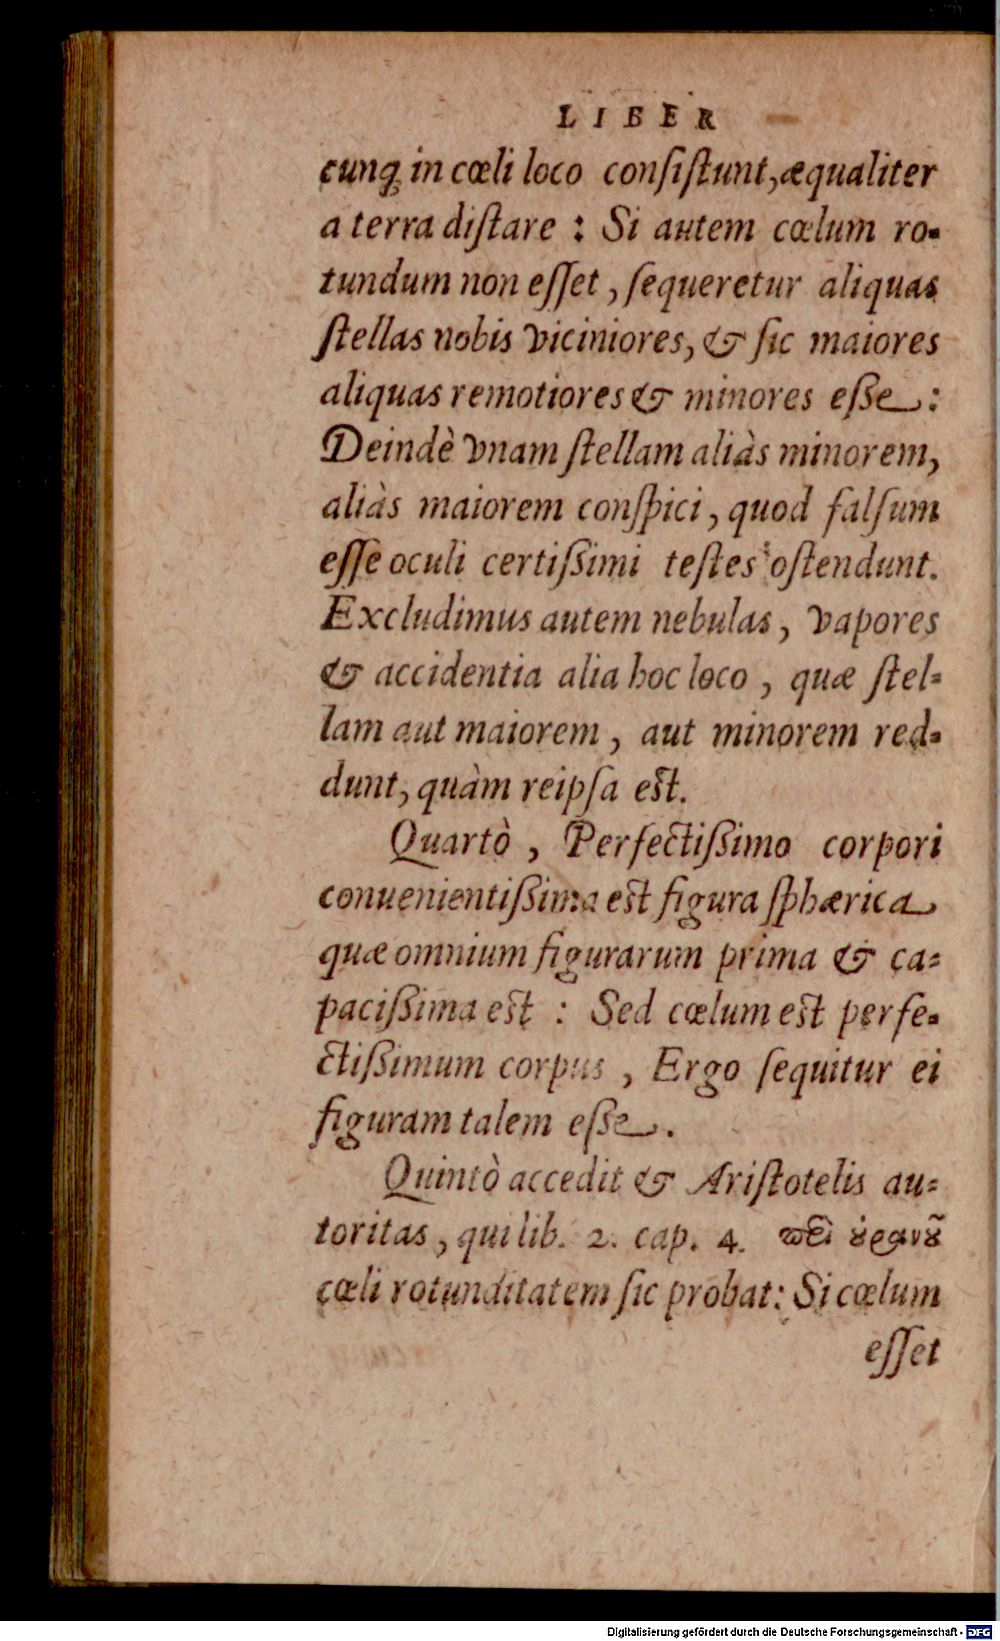 LIBER
cunq́; in cœli loco conſiſtunt, æqualiter
a terra diſtare : Si autem cœlum ro-
tundum non eſſet, ſequeretur aliquas
ſtellas nobis viciniores, & ſic maiores
aliquas remotiores & minores eſſe :
Deindè vnam ſtellam aliàs minorem,
aliàs maiorem conſpici, quod falſum
eſſe oculi certiſſimi teſtes oſtendunt.
Excludimus autem nebulas, vapores
& accidentia alia hoc loco, quæ ſtel-
lam aut maiorem, aut minorem red-
dunt, quàm reipſa eſt.
Quartò, Perfectiſſimo corpori
conuenientiſſima eſt figura ſphærica
quæ omnium figurarum prima & ca-
paciſſima eſt : Sed cœlum eſt perfe-
ctiſſimum corpus, Ergo ſequitur ei
figuram talem eſſe.
Quintò accedit & Ariſtotelis au-
toritas, qui lib. 2. cap. 4. περὶ οὐρανοῦ
cœli rotunditatem ſic probat: Si cœlum
eſſet
Digitalisierung gefördert durch die Deutsche Forschungsgemeinschaft - DFG